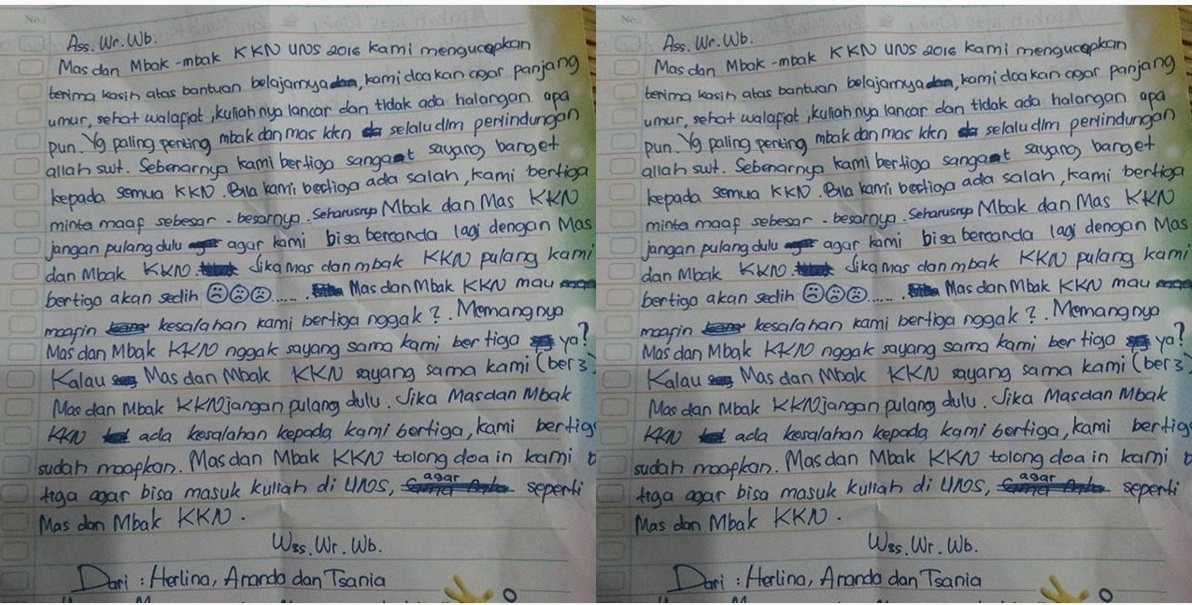 Ass. Wr. Wb.
Mas dan Mbak-mbak KKN UNS 2016 kami mengucapkan
terima kasih atas bantuan belajarnya, kami doakan agar panjang
umur, sehat walafiat, kuliahnya lancar dan tidak ada halangan apa
pun. Yg paling penting mbak dan mas kkn selalu dlm perlindungan
allah swt. Sebenarnya kami bertiga sangat sayang banget
kepada semua KKN. Bila kami bertiga ada salah, kami bertiga
minta maaf sebesar-besarnya. Seharusnya Mbak dan Mas KKN
jangan pulang dulu agar kami bisa bercanda lagi dengan Mas
dan Mbak KKN. Jika mas dan mbak KKN pulang kami
bertiga akan sedih ☹☹☹...... Mas dan Mbak KKN mau
maafin kesalahan kami bertiga nggak?. Memangnya
Mas dan Mbak KKN nggak sayang sama kami bertiga ya?
Kalau Mas dan Mbak KKN sayang sama kami (ber3)
Mas dan Mbak KKN jangan pulang dulu. Jika Mas dan Mbak
KKN ada kesalahan kepada kami bertiga, kami bertiga
sudah maapkan. Mas dan Mbak KKN tolong doain kami b
tiga agar bisa masuk kuliah di UNS, agar seperti
Mas dan Mbak KKN.
Wss. Wr. Wb.
Dari : Herlina, Ananda dan Tsania
Ass. Wr. Wb.
Mas dan Mbak-mbak KKN UNS 2016 kami mengucapkan
terima kasih atas bantuan belajarnya, kami doakan agar panjang
umur, sehat walafiat, kuliahnya lancar dan tidak ada halangan apa
pun. Yg paling penting mbak dan mas kkn selalu dlm perlindungan
allah swt. Sebenarnya kami bertiga sangat sayang banget
kepada semua KKN. Bila kami bertiga ada salah, kami bertiga
minta maaf sebesar-besarnya. Seharusnya Mbak dan Mas KKN
jangan pulang dulu agar kami bisa bercanda lagi dengan Mas
dan Mbak KKN. Jika mas dan mbak KKN pulang kami
bertiga akan sedih ☹☹☹...... Mas dan Mbak KKN mau
maafin kesalahan kami bertiga nggak?. Memangnya
Mas dan Mbak KKN nggak sayang sama kami bertiga ya?
Kalau Mas dan Mbak KKN sayang sama kami (ber3)
Mas dan Mbak KKN jangan pulang dulu. Jika Mas dan Mbak
KKN ada kesalahan kepada kami bertiga, kami bertig
sudah maapkan. Mas dan Mbak KKN tolong doain kami b
tiga agar bisa masuk kuliah di UNS, agar seperti
Mas dan Mbak KKN.
Wss. Wr. Wb.
Dari : Herlina, Ananda dan Tsania